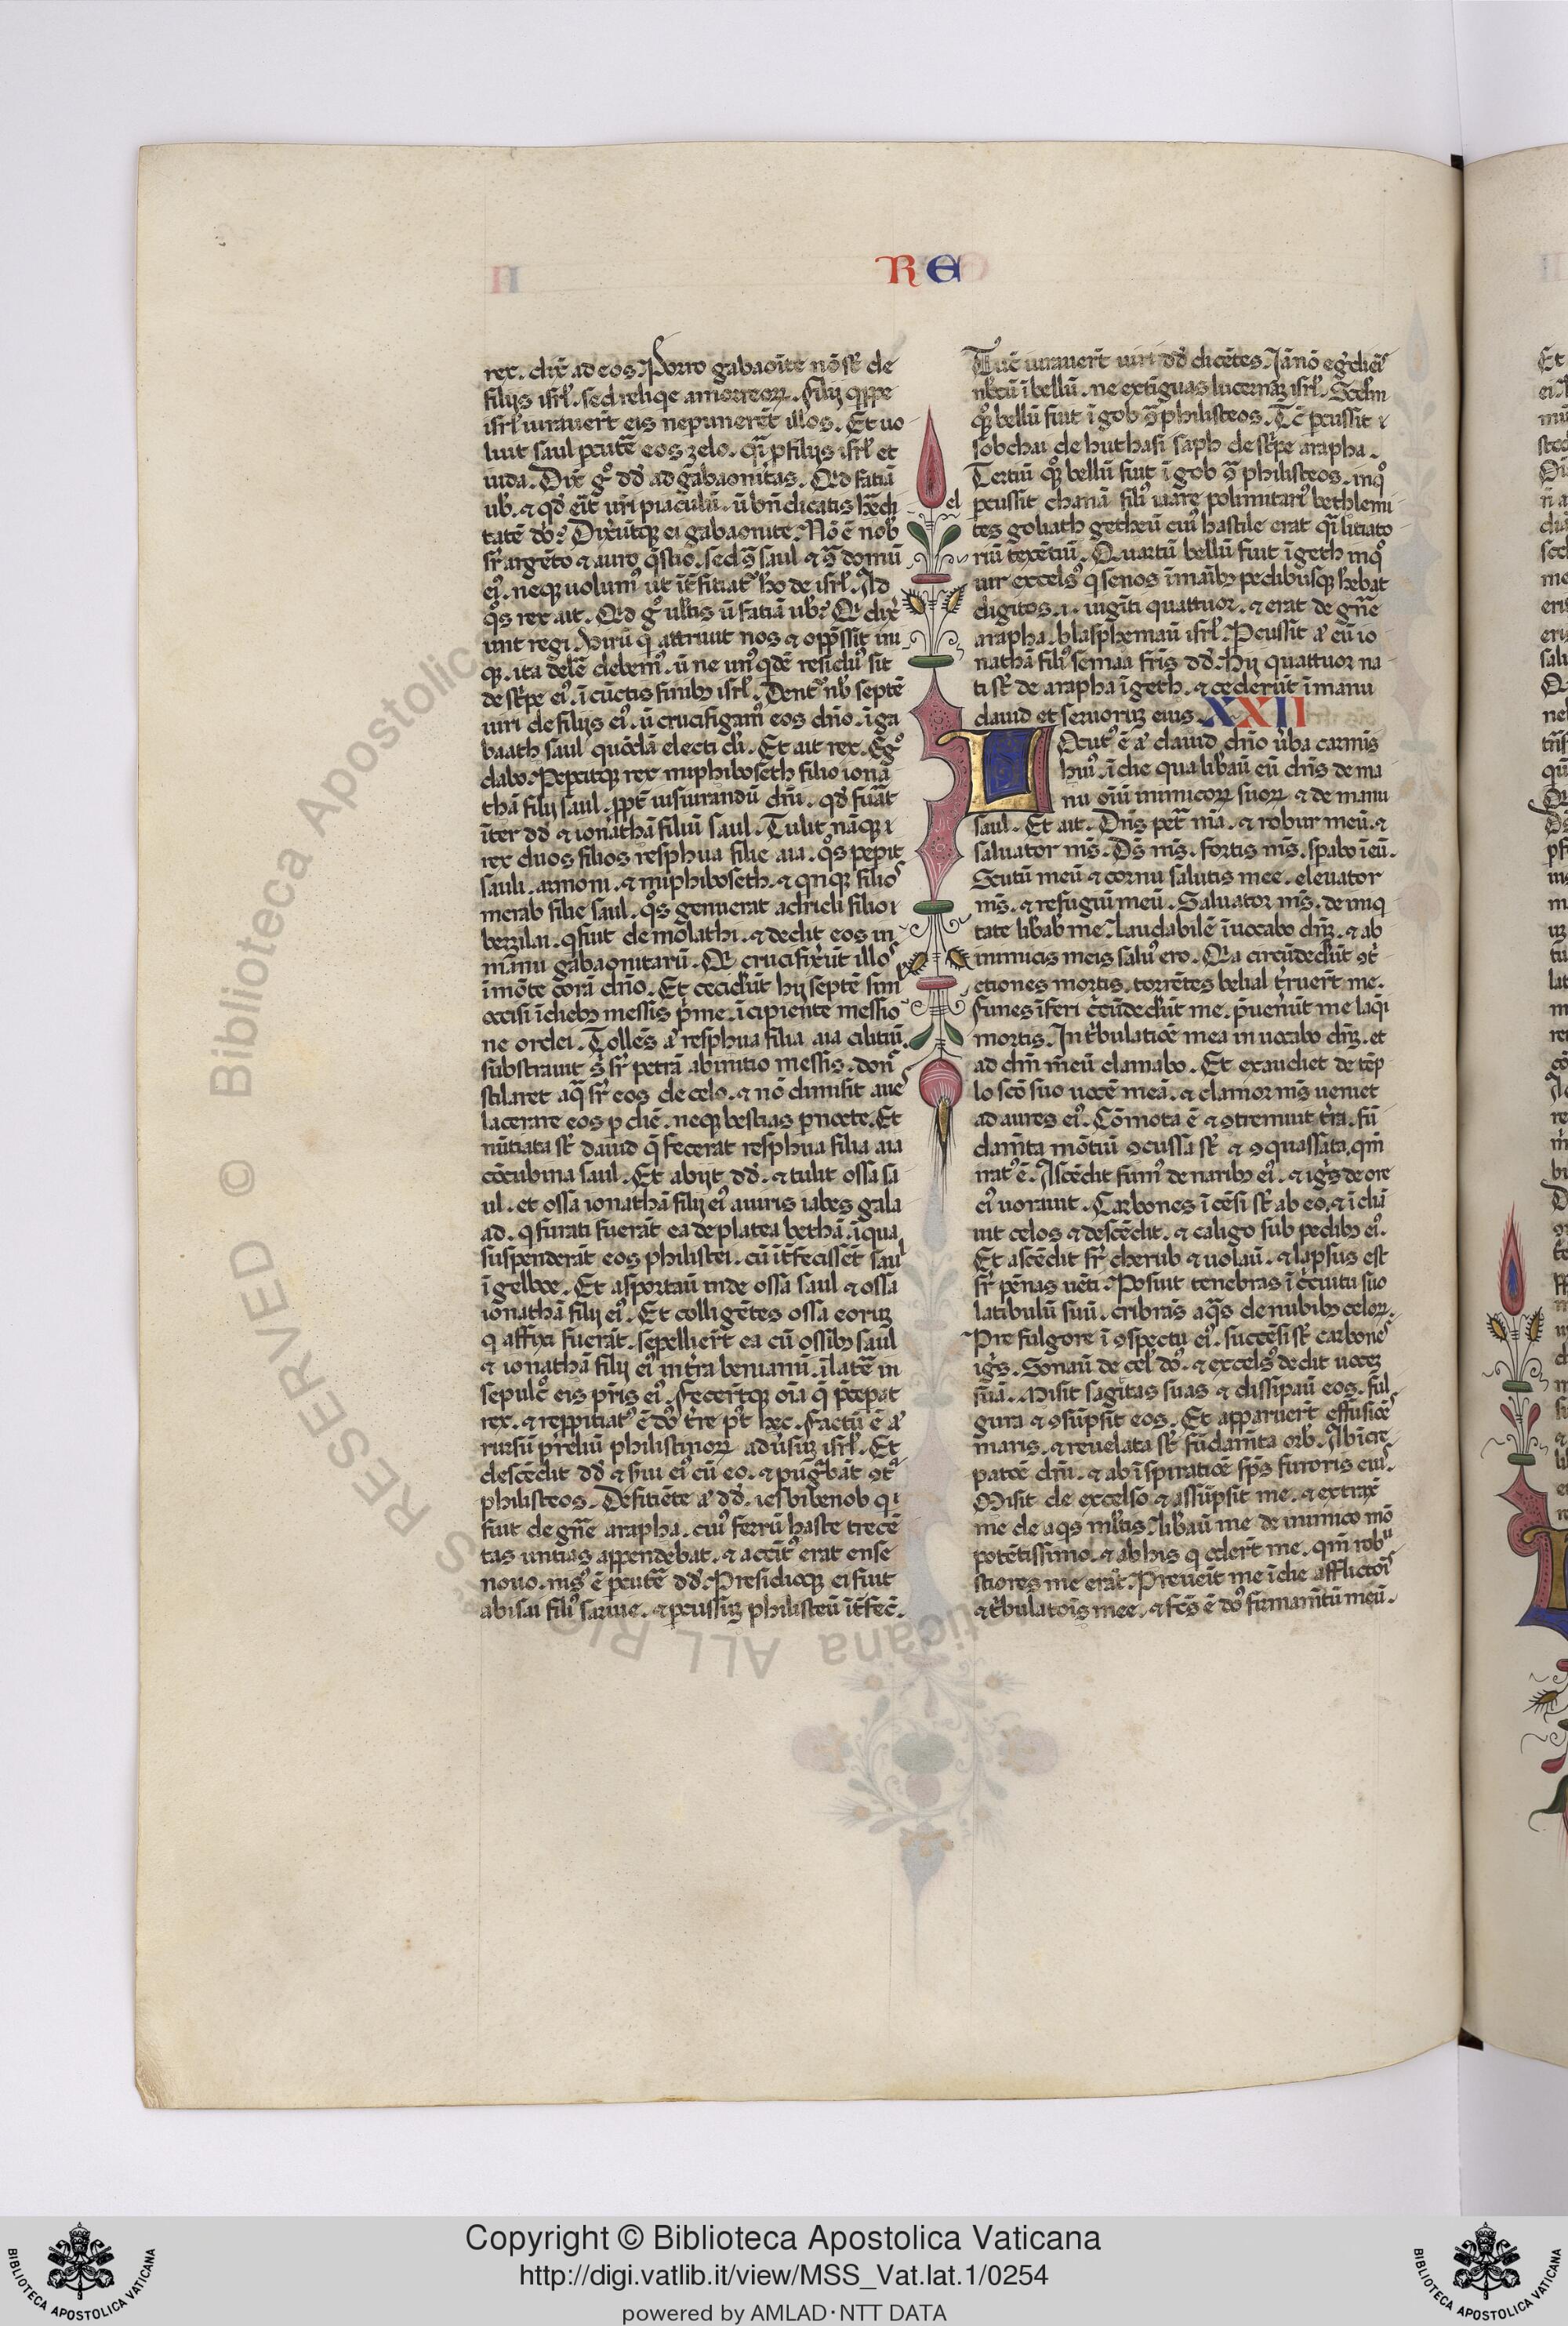 RE
rex. dix̄ ad eos. Porro gabaoīte nō st̄ de
filijs isrl̄. sed reliqe amorreoꝝ. filij qͥppe
isrl̄ iuraver̄t eis ne puneren̄t illos. Et uo
luit saul ꝑcutē eos zelo. qͣi ꝓ filijs isrl̄ et
iuda. Dix̄ gͦ dd̄ ad gabaonitas. Qid fatiā
ub̄. ⁊ qd̄ eīt ur̄i piaculū. ū bn̄dicatis hēdi
tatē dō? Dix̄ūtqꝫ ei gabaonite. Nō ē nob̄
sr̄ argēto ⁊ auro q̄stio. sed ꝯͣ saul ⁊ ꝯͣ domū
eiꝰ. neqꝫ uolumꝰ ut īt̄fitiatᷣ hō de isrl̄. Ad
qͦs rex ait. Qid gͦ uultis ū fatiā ub̄? Qi dix̄
unt regi. Virū qͥ attriuit nos ⁊ opp̄ssit iniͥ
qꝫ. ita delē debemꝰ. ū ne unꝰ qͥdē residuꝰ sit
de stͥpe eiꝰ. ī cūctis finibꝫ isrl̄. Dentᷣ nb̄ septē
uiri de filijs eiꝰ. ū crucifigamꝰ eos dn̄o. ī ga
baath saul quōdā electi dn̄i. Et ait rex. Egͦ
dabo. Pepcitqꝫ rex miphiboseth filio ionā
thā filij saul. ꝓpt̄ iusiurandū dn̄i. qd̄ fuāt
īter dd̄ ⁊ ionāthā filiū saul. Tulit nāqꝫ
rex duos filios resphua filie aia. qͦs pepit
sauli. armoni. ⁊ miphiboseth. ⁊ qͥnqꝫ filios
merab filie saul. qͦs genuerat adrieli filio
berzilai. qͥ fuit de molathi. ⁊ dedit eos in
manu gabaonitarū. Qi crucifixer̄ūt illos
ī mōte corā dn̄o. Et ceciderūt hij septē simͥ
occisi ī diebꝫ messis pͥme. ī cipiente messio
ne ordei. Tollēs aͣ resphua filia aia cilitiū
substravit sͥ sr̄ petrā ab initio messis. donͨ
stilaret aqͣ sr̄ eos de celo. ⁊ nō dimisit aues
lacerare eos ꝑ diē. neqꝫ bestias ꝑ nocte. Et
nūtiata st̄ david q̄ fecerat resphua filia aia
cōcubina saul. Et abijt dd̄. ⁊ tulit ossa sa
ul. et ossa ionathā filij eiꝰ a uiris iabes gala
ad. qͥ furati fuerāt ea de platea bethā. ī qua
suspenderāt eos philistei. cū īt̄fecissēt saul
ī gelboe. Et asportaū inde ossa saul ⁊ ossa
ionathā filij eiꝰ. Et colligētes ossa eoruꝫ
qͥ affixi fuerāt. sepelliert̄ ea cū ossibꝫ saul
⁊ ionathā filij eiꝰ in tr̄ra beniamī. ī latē in
sepulcͦ cis pr̄is eiꝰ. Fecer̄tqꝫ oīa q̄ p̄cepat
rex. ⁊ repꝓpitiatꝰ ē dō tr̄re pꝰt hec. Factū ē aͣ
rursū pr̄eliū philistinoꝝ aduͥsuꝫ isrl̄. Et
descēdit dd̄ ⁊ sͥui eiꝰ cū eo. ⁊ pugͣbāt ꝯtͣ
philisteos. Defitiēte aͣ dd̄. iesbibenob qͥ
fuit de gn̄e arapha. cuiꝰ ferrū haste trecē
tas untias appendebat. ⁊ accītꝰ erat ense
nouo. nisꝰ ē ꝑcutē dd̄. Presidioqꝫ ei fuit
abisai filiꝰ saruie. ⁊ ꝑcussuꝫ philisteū īt̄fec̄.
Tuc̄ iuraver̄t uiri dd̄ dicētes. Iā nō egͥdieris
nb̄cū ī bellū. ne extīguas lucernaꝫ isrl̄. Scd̄m
qꝫ bellū fuit ī gob ꝯͣ philisteos. Tc̄ ꝑcussit
sobchai de huthasi saph de stͥpe arapha.
Tertiū qꝫ bellū fuit ī gob ꝯͣ philisteos. inqͦ
ꝑcussit chanā filiꝰ iiare polimitariꝰ bethlemi
tes goliath getheū cuiꝰ hastile erat qͣi litiato
riū texētiū. Quartū bellū fuit ī geth inqͦ
uir excelsꝰ qͥ senos ī manibꝫ pedibusqꝫ hēbat
digitos. .i. uigīti quattuor. ⁊ erat de gn̄e
arapha. blasphemaū isrl̄. Pcussit aͣ eū io
nathā filiꝰ semaa fr̄is dd̄. Hij quattuor na
ti st̄ de arapha ī geth. ⁊ cecider̄ūt ī manu
david et seruoruꝫ eius. XXII
Locutꝰ ē aͣ david dn̄o uͥba carmīs
huiꝰ. ī die qua lib̄aū eū dn̄s de ma
nu oīū inimicoꝝ suoꝝ ⁊ de manu
saul. Et ait. Dn̄s pet̄ mͣ. ⁊ robur meū. ⁊
saluator ms̄. Ds̄ ms̄. fortis ms̄. spabo ī eū.
Scutū meū ⁊ cornu salutis mee. eleuator
ms̄. ⁊ refugiū meū. Saluator ms̄. de iniqͥ
tate lib̄ab̄ me. Laudabilē īuocabo dn̄ꝫ. ⁊ ab
inimicis meis saluꝰ ero. Qia circūdeder̄ūt ꝯtͥ
ctiones mortis. torrētes belial tr̄ruer̄t me.
Funes īferi cͥcūdeder̄ūt me. p̄uener̄ūt me laqͥi
mortis. In tͥbulatiōe mea inuocabo dn̄ꝫ. et
ad dn̄m meū clamabo. Et exaudiet de tēp
lo scō suo uocē meā. ⁊ clamor ms̄ ueniet
ad aures eiꝰ. Cōmota ē ⁊ ꝯtremuit tr̄ra. fū
damīta mōtiū ꝯcussa st̄ ⁊ ꝯquassata. qm̄
iratꝰ ē. Ascēdit fumꝰ de naribꝫ eiꝰ. ⁊ igͥs de ore
eiꝰ uorauit. Carbones ī cēsi st̄ ab eo. ⁊ ī clīa
uit celos ⁊ descēdit. ⁊ caligo sub pedibꝫ eiꝰ.
Et ascēdit sr̄ cherub ⁊ uolaū. ⁊ lapsus est
sr̄ pēnas uēti. Posuit tenebras ī cͥcuitu suo
latibulū suū. cribrās aqͣs de nubibꝫ celoꝝ.
Pre fulgore ī ꝯspectu eiꝰ. succēsi st̄ carbones
igͥs. Sonaū de celꝰ dō. ⁊ excelsꝰ dedit uoceꝫ
suā. Misit sagittas suas ⁊ dissipaū eos. ful
gura ⁊ ꝯsūpsit eos. Et apparuer̄t effusiōes
maris. ⁊ reuelata st̄ fūdamīta orb̄. Ab īcre
patōe dn̄i. ⁊ ab īspiratiōe sps̄ furoris eiꝰ.
Misit de excelso ⁊ assūpsit me. ⁊ extrax̄
me de aqͥs mltis. Lib̄aū me de inimico mō
potētissimo. ⁊ ab his qͥ oder̄t me. qm̄ robu
stiores me erāt. Preueīt me ī die afflictōis
⁊ tͥbulatōis mee. ⁊ fcs̄ ē dō firmamētū meū.
Copyright © Biblioteca Apostolica Vaticana
http://digi.vatlib.it/view/MSS_Vat.lat.1/0254
powered by AMLAD·NTT DATA
BIBLIOTECA APOSTOLICA VATICANA
BIBLIOTECA APOSTOLICA VATICANA